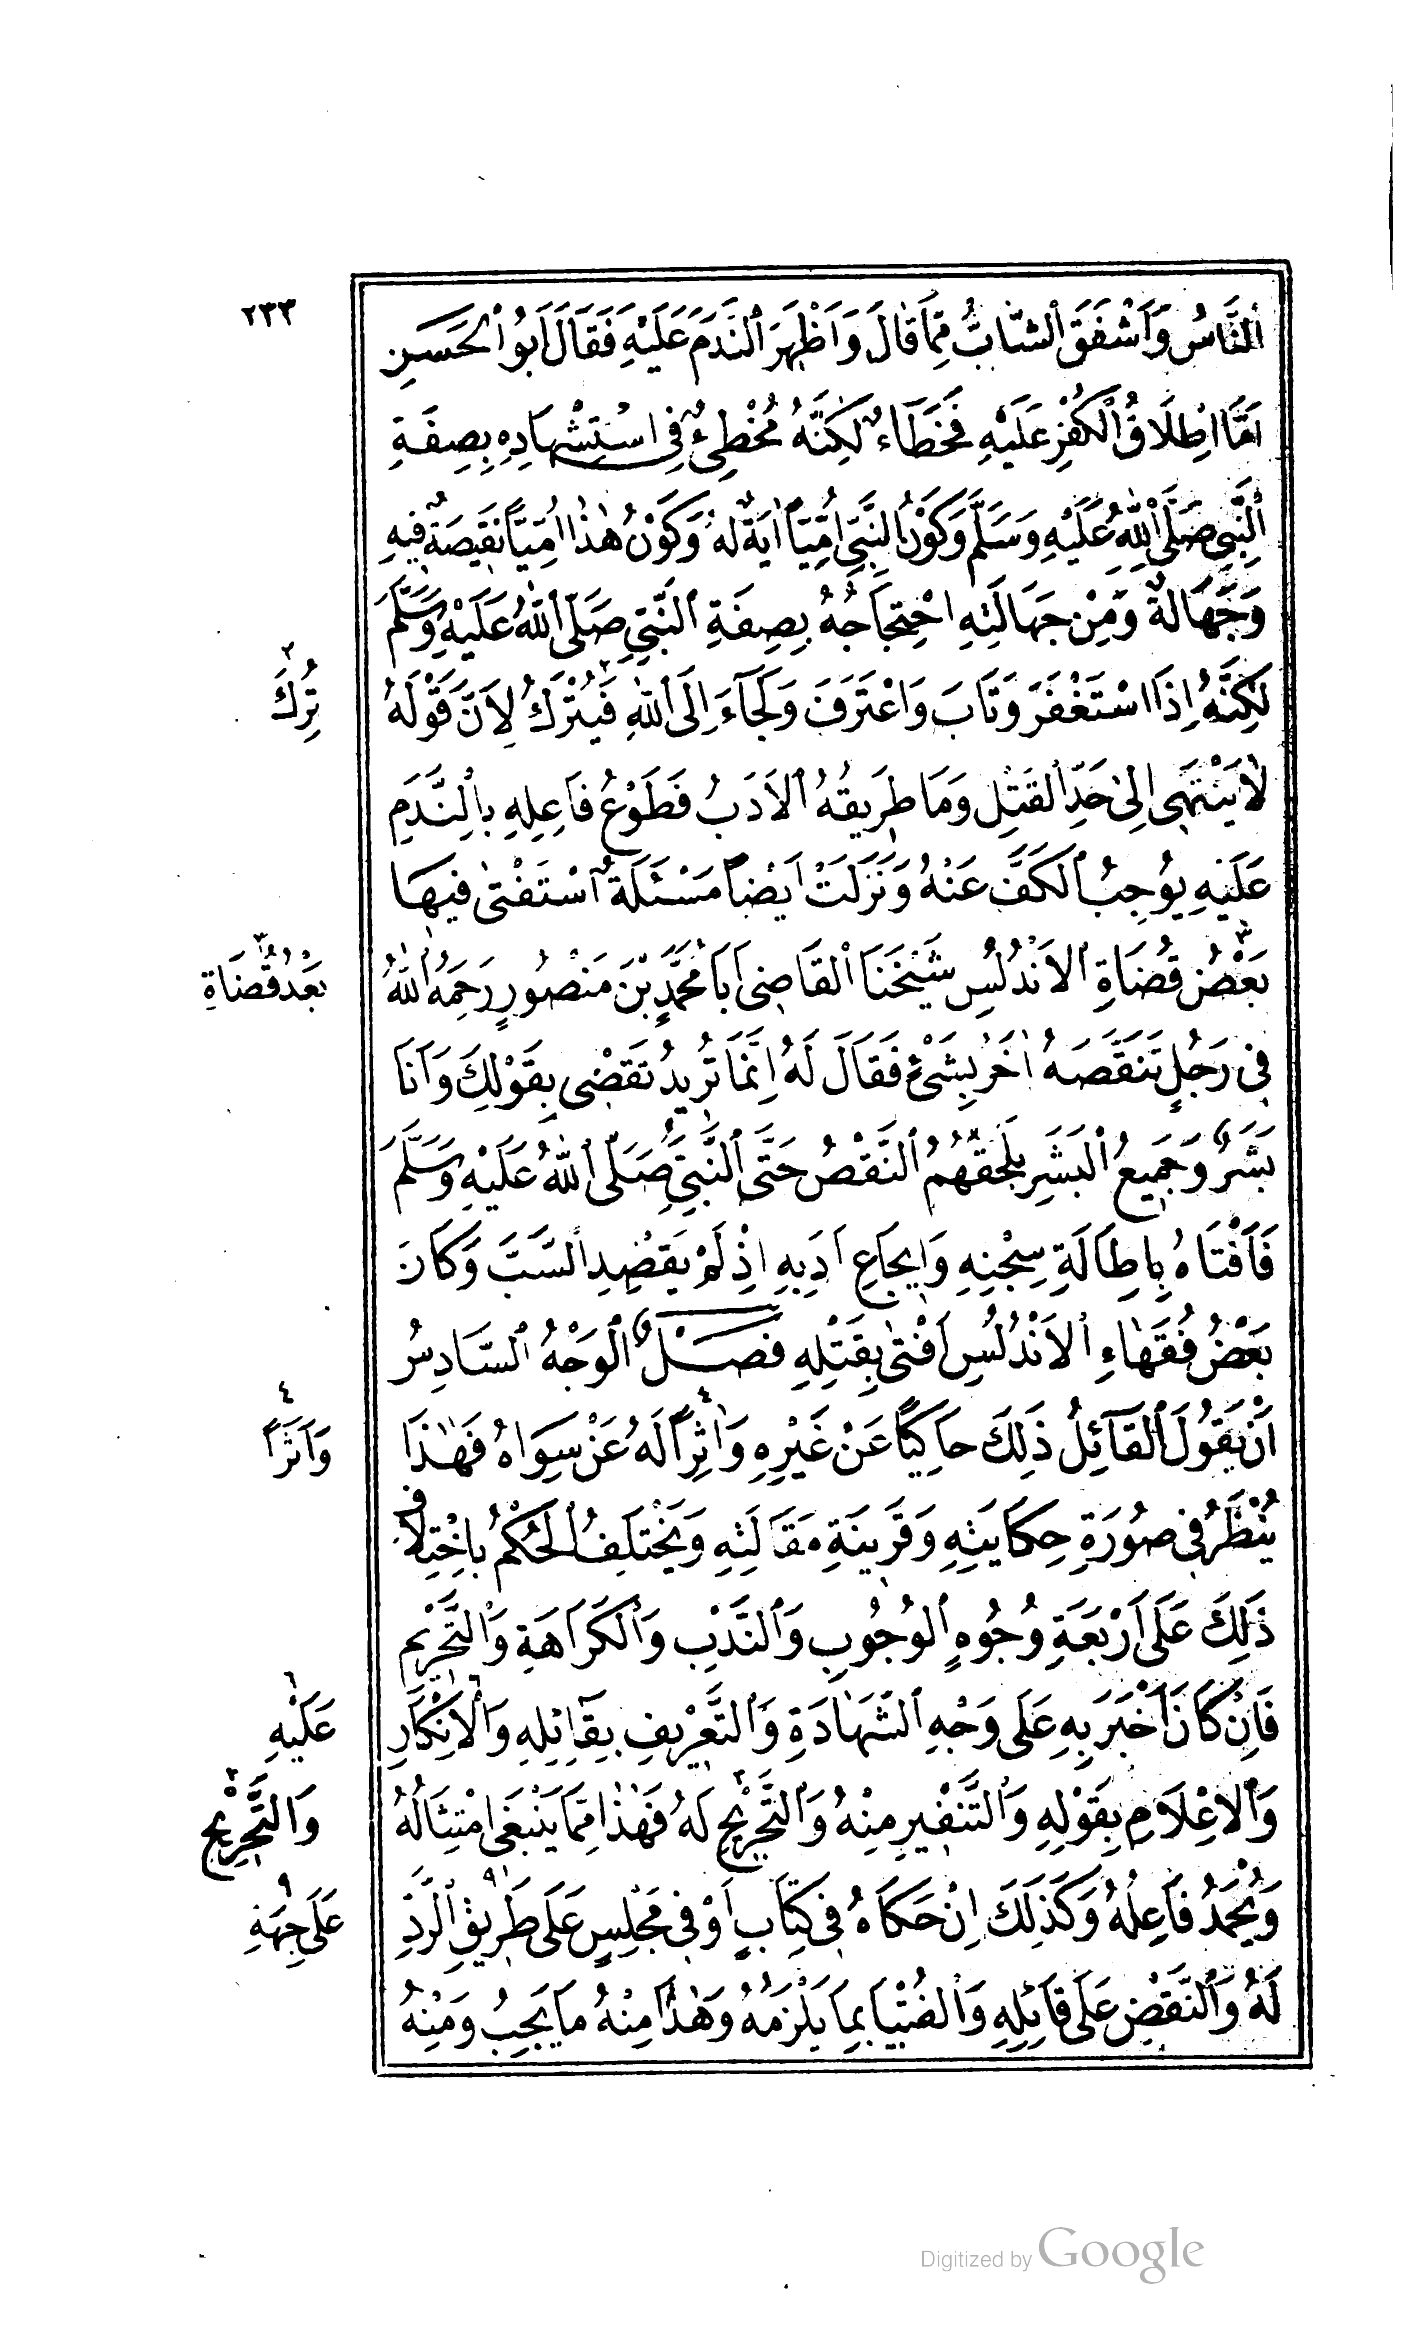 ٢٣٣
اَلنَّاسُ وَاَشْفَقَ الشَّابُّ مِمَّا قَالَ وَاَظْهَرَ النَّدَمَ عَلَيْهِ فَقَالَ اَبُو الْحَسَنِ
اَمَّا اِطْلَاقُ الْكُفْرِ عَلَيْهِ فَخَطَاءٌ لٰكِنَّهُ مُخْطِئٌ فِي اسْتِشْهَادِهِ بِصِفَةِ
النَّبِيِّ صَلَّى اللّٰهُ عَلَيْهِ وَسَلَّمَ وَكَوْنُ النَّبِيِّ اُمِّيًّا اٰيَةٌ لَهُ وَكَوْنُ هٰذَا اُمِّيًّا نَقِيصَةٌ فِيهِ
وَجَهَالَةٌ وَمِنْ جَهَالَتِهِ احْتِجَاجُهُ بِصِفَةِ النَّبِيِّ صَلَّى اللّٰهُ عَلَيْهِ وَسَلَّمَ
لٰكِنَّهُ اِذَا اسْتَغْفَرَ وَتَابَ وَاعْتَرَفَ وَلَجَأَ اِلَى اللّٰهِ فَيُتْرَكُ لِاَنَّ قَوْلَهُ
تُرِكَ ٢
لَا يَنْتَهِي اِلٰى حَدِّ الْقَتْلِ وَمَا طَرِيقُهُ الْاَدَبُ فَطَوْعُ فَاعِلِهِ بِالنَّدَمِ
عَلَيْهِ يُوجِبُ الْكَفَّ عَنْهُ وَنَزَلَتْ اَيْضًا مَسْئَلَةٌ اسْتَفْتٰى فِيهَا
بَعْضُ قُضَاةِ الْاَنْدُلُسِ شَيْخَنَا الْقَاضِيَ اَبَا مُحَمَّدِ بْنَ مَنْصُورٍ رَحِمَهُ اللّٰهُ
بَعْدُ قُضَاةِ ٣
فِي رَجُلٍ تَنَقَّصَهُ اٰخَرُ بِشَيْءٍ فَقَالَ لَهُ اِنَّمَا تُرِيدُ نَقْضِي بِقَوْلِكَ وَاَنَا
بَشَرٌ وَجَمِيعُ الْبَشَرِ يَلْحَقُهُمُ النَّقْصُ حَتَّى النَّبِيِّ صَلَّى اللّٰهُ عَلَيْهِ وَسَلَّمَ
فَاَفْتَاهُ بِاِطَالَةِ سِجْنِهِ وَاِيجَاعِ اَدَبِهِ اِذْ لَمْ يَقْصِدِ السَّبَّ وَكَانَ
بَعْضُ فُقَهَاءِ الْاَنْدُلُسِ اَفْتٰى بِقَتْلِهِ فَصْلٌ الْوَجْهُ السَّادِسُ
اَنْ يَقُولَ الْقَائِلُ ذٰلِكَ حَاكِيًا عَنْ غَيْرِهِ وَاٰثِرًا لَهُ عَنْ سِوَاهُ فَهٰذَا
وَاَثَرًا ٤
يُنْظَرُ فِي صُورَةِ حِكَايَتِهِ وَقَرِينَةِ مَقَالَتِهِ وَيَخْتَلِفُ الْحُكْمُ بِاخْتِلَافِ
ذٰلِكَ عَلٰى اَرْبَعَةِ وُجُوهٍ الْوُجُوبِ وَالنَّدْبِ وَالْكَرَاهَةِ وَالتَّحْرِيمِ
فَاِنْ كَانَ اَخْبَرَ بِهِ عَلٰى وَجْهِ الشَّهَادَةِ وَالتَّعْرِيفِ بِقَائِلِهِ وَالْاِنْكَارِ
عَلَيْهِ ٦
وَالْاِعْلَامِ بِقَوْلِهِ وَالتَّنْفِيرِ مِنْهُ وَالتَّجْرِيحِ لَهُ فَهٰذَا مِمَّا يَنْبَغِي امْتِثَالُهُ
وَالتَّحْرِيجِ ٢
وَيُحْمَدُ فَاعِلُهُ وَكَذٰلِكَ اِنْ حَكَاهُ فِي كِتَابٍ اَوْ فِي مَجْلِسٍ عَلٰى طَرِيقِ الرَّدِّ
عَلٰى جِهَةِ ٩
لَهُ وَالنَّقْضِ عَلٰى قَائِلِهِ وَالْفُتْيَا بِمَا يَلْزَمُهُ وَهٰذَا مِنْهُ مَا يَجِبُ وَمِنْهُ
Digitized by Google